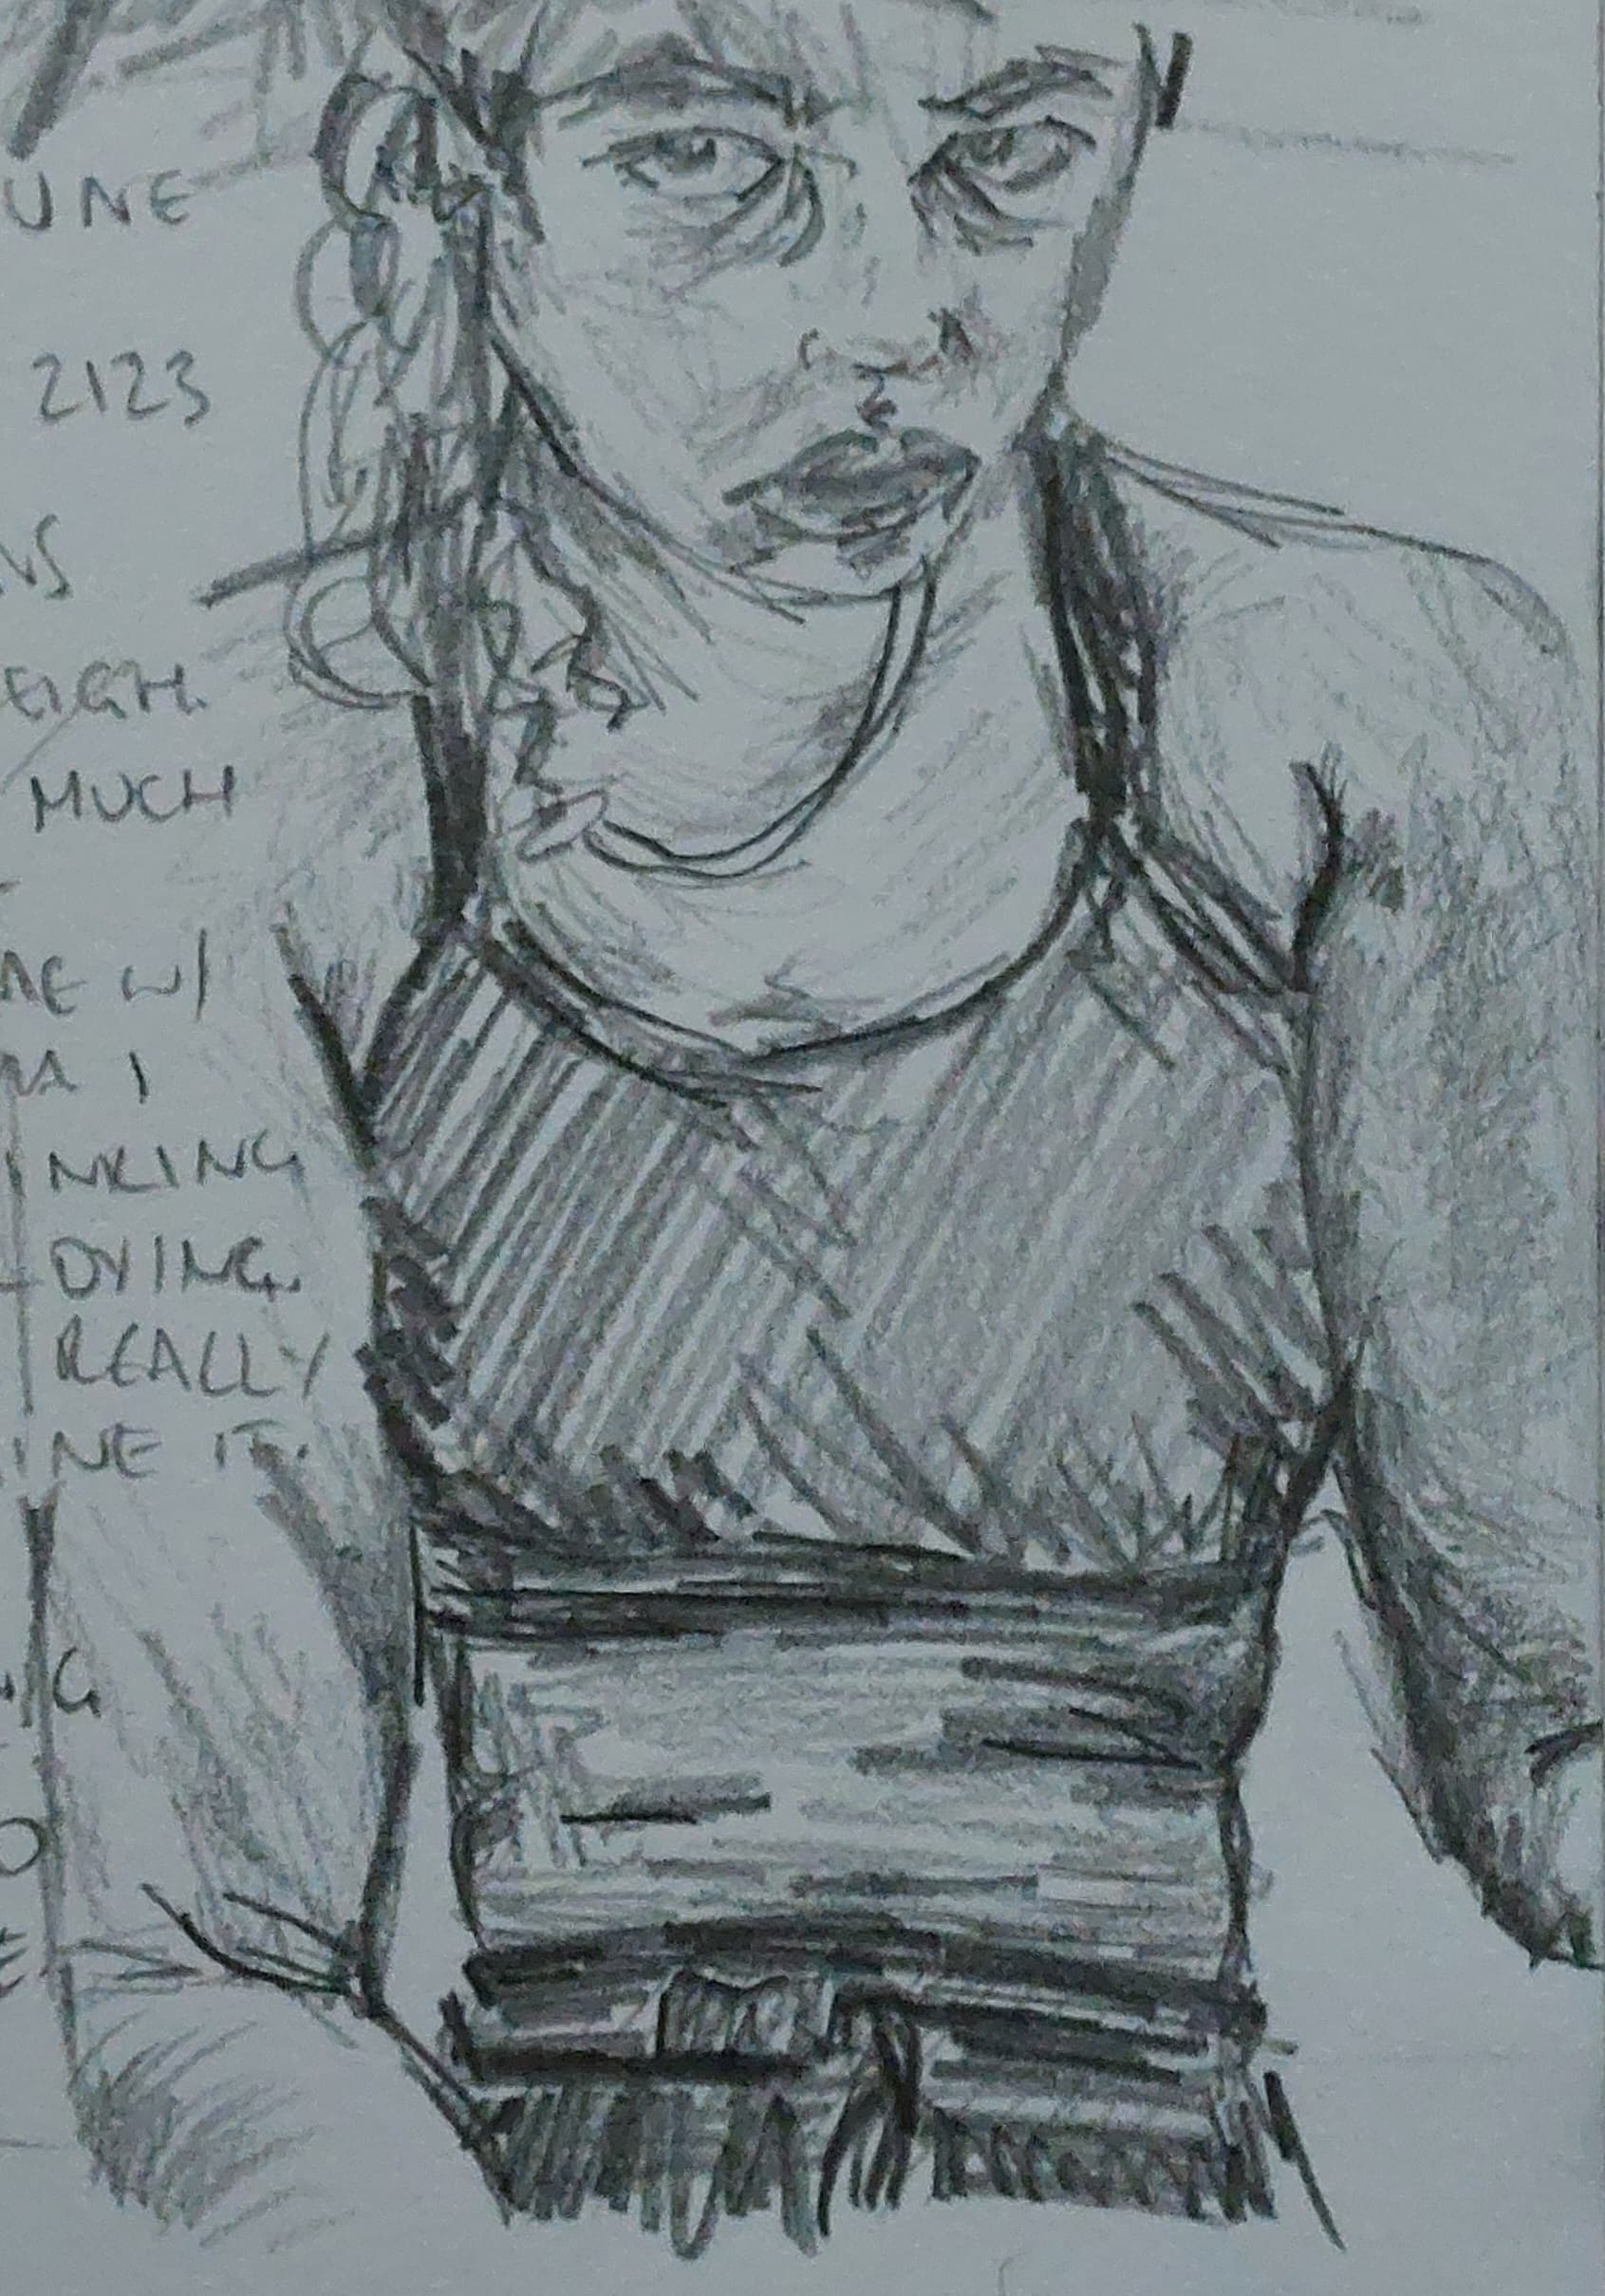 UNE
2123
NS
EIGH.
MUCH
ME W/
MA I
INKING
DYING.
REALLY
INE IT.